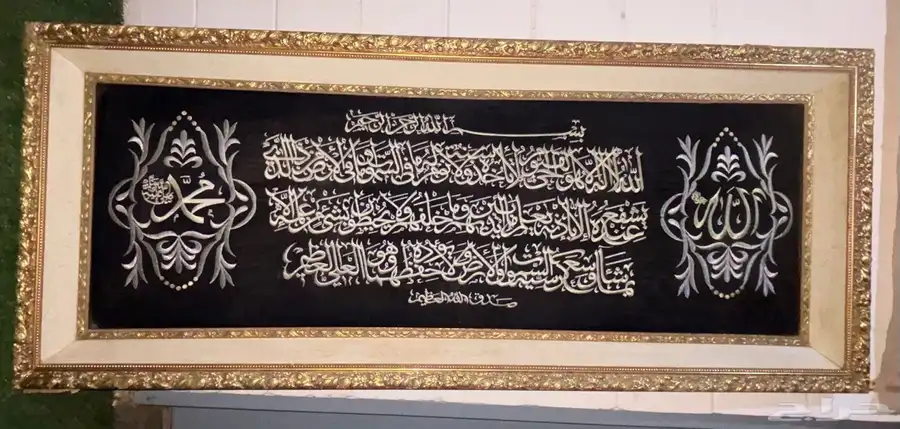 بسم الله الرحمن الرحيم
الله لا إله إلا هو الحي القيوم لا تأخذه سنة ولا نوم له ما في السموات وما في الأرض من ذا الذي
يشفع عنده إلا بإذنه يعلم ما بين أيديهم وما خلفهم ولا يحيطون بشيء من علمه إلا
بما شاء وسع كرسيه السموات والأرض ولا يؤده حفظهما وهو العلي العظيم
صدق الله العظيم
الله
محمد
حراج